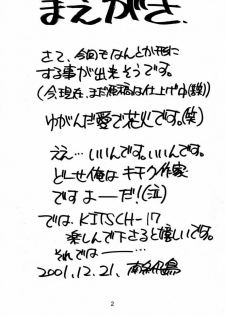 まえがき、
さて、今回もなんとか形に
する事が出来そうです。
(今現在、まだ原稿は仕上げ中(爆))
ゆがんだ愛で花火です。(笑)
ええ…いいんです。いいんです。
どーせ俺はキチク作家
ですよーだ!(泣)
では、KITSCH-17
楽しんで下さると嬉しいです。
それでは―――…
2001.12.21.
2